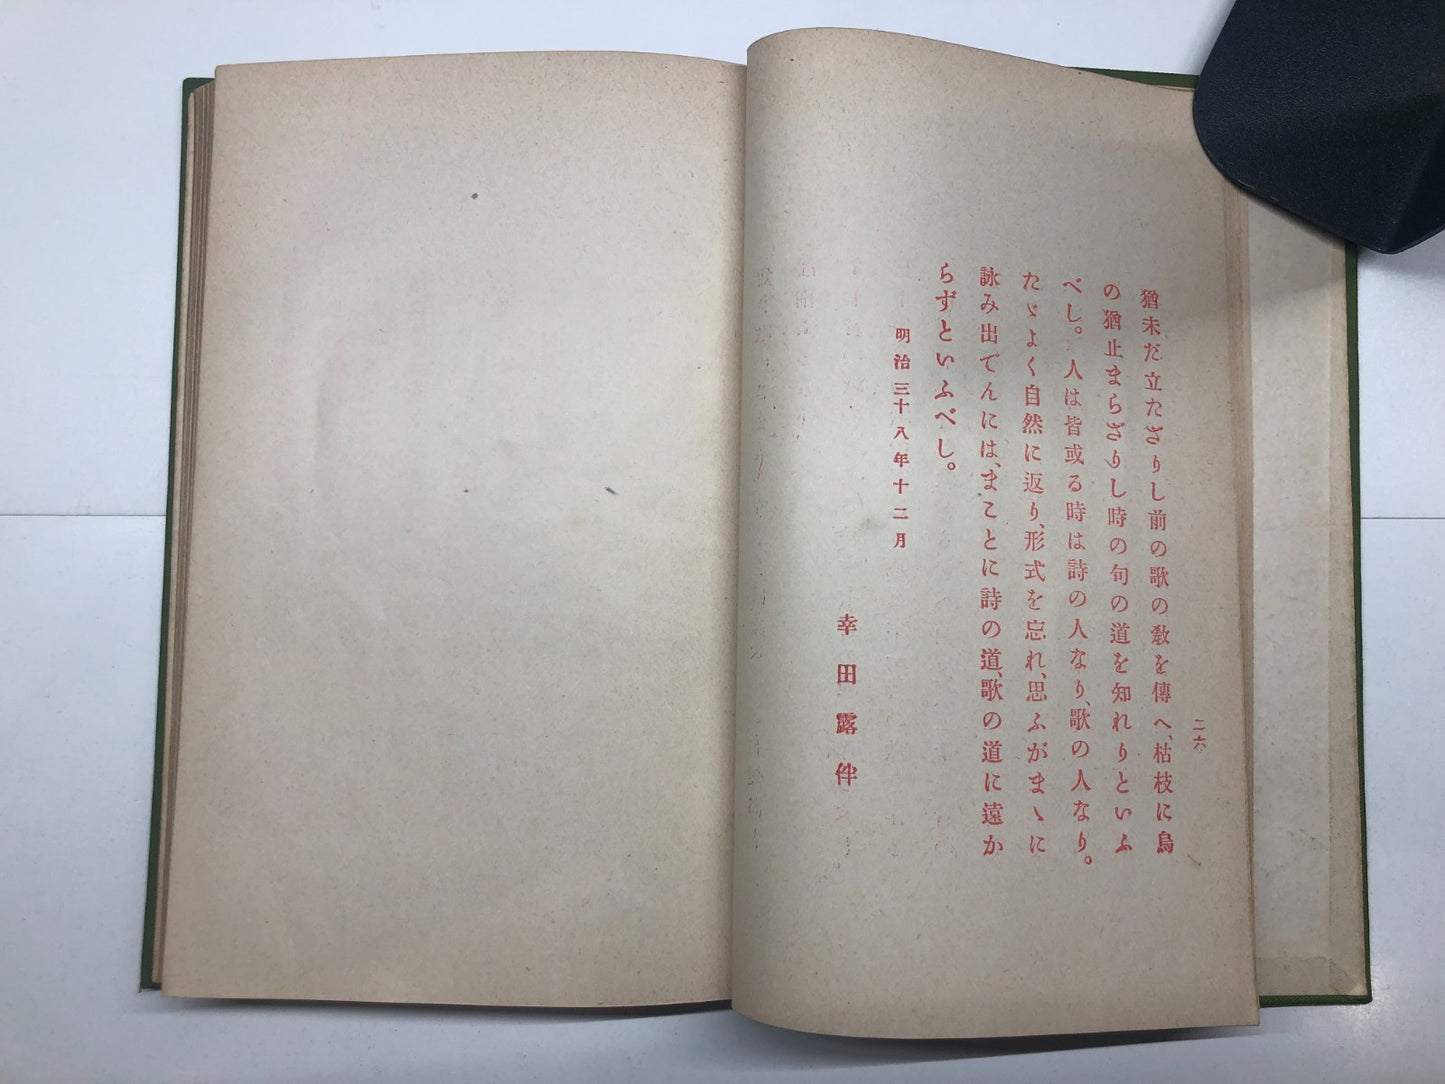 二六
猶未だ立たざりし前の歌の敎を傳へ、枯枝に烏
の猶止まらざりし時の句の道を知れりといふ
べし。人は皆或る時は詩の人なり、歌の人なり。
たゞよく自然に返り、形式を忘れ、思ふがまゝに
詠み出でんには、まことに詩の道、歌の道に遠か
らずといふべし。
明治三十八年十二月
幸田露伴